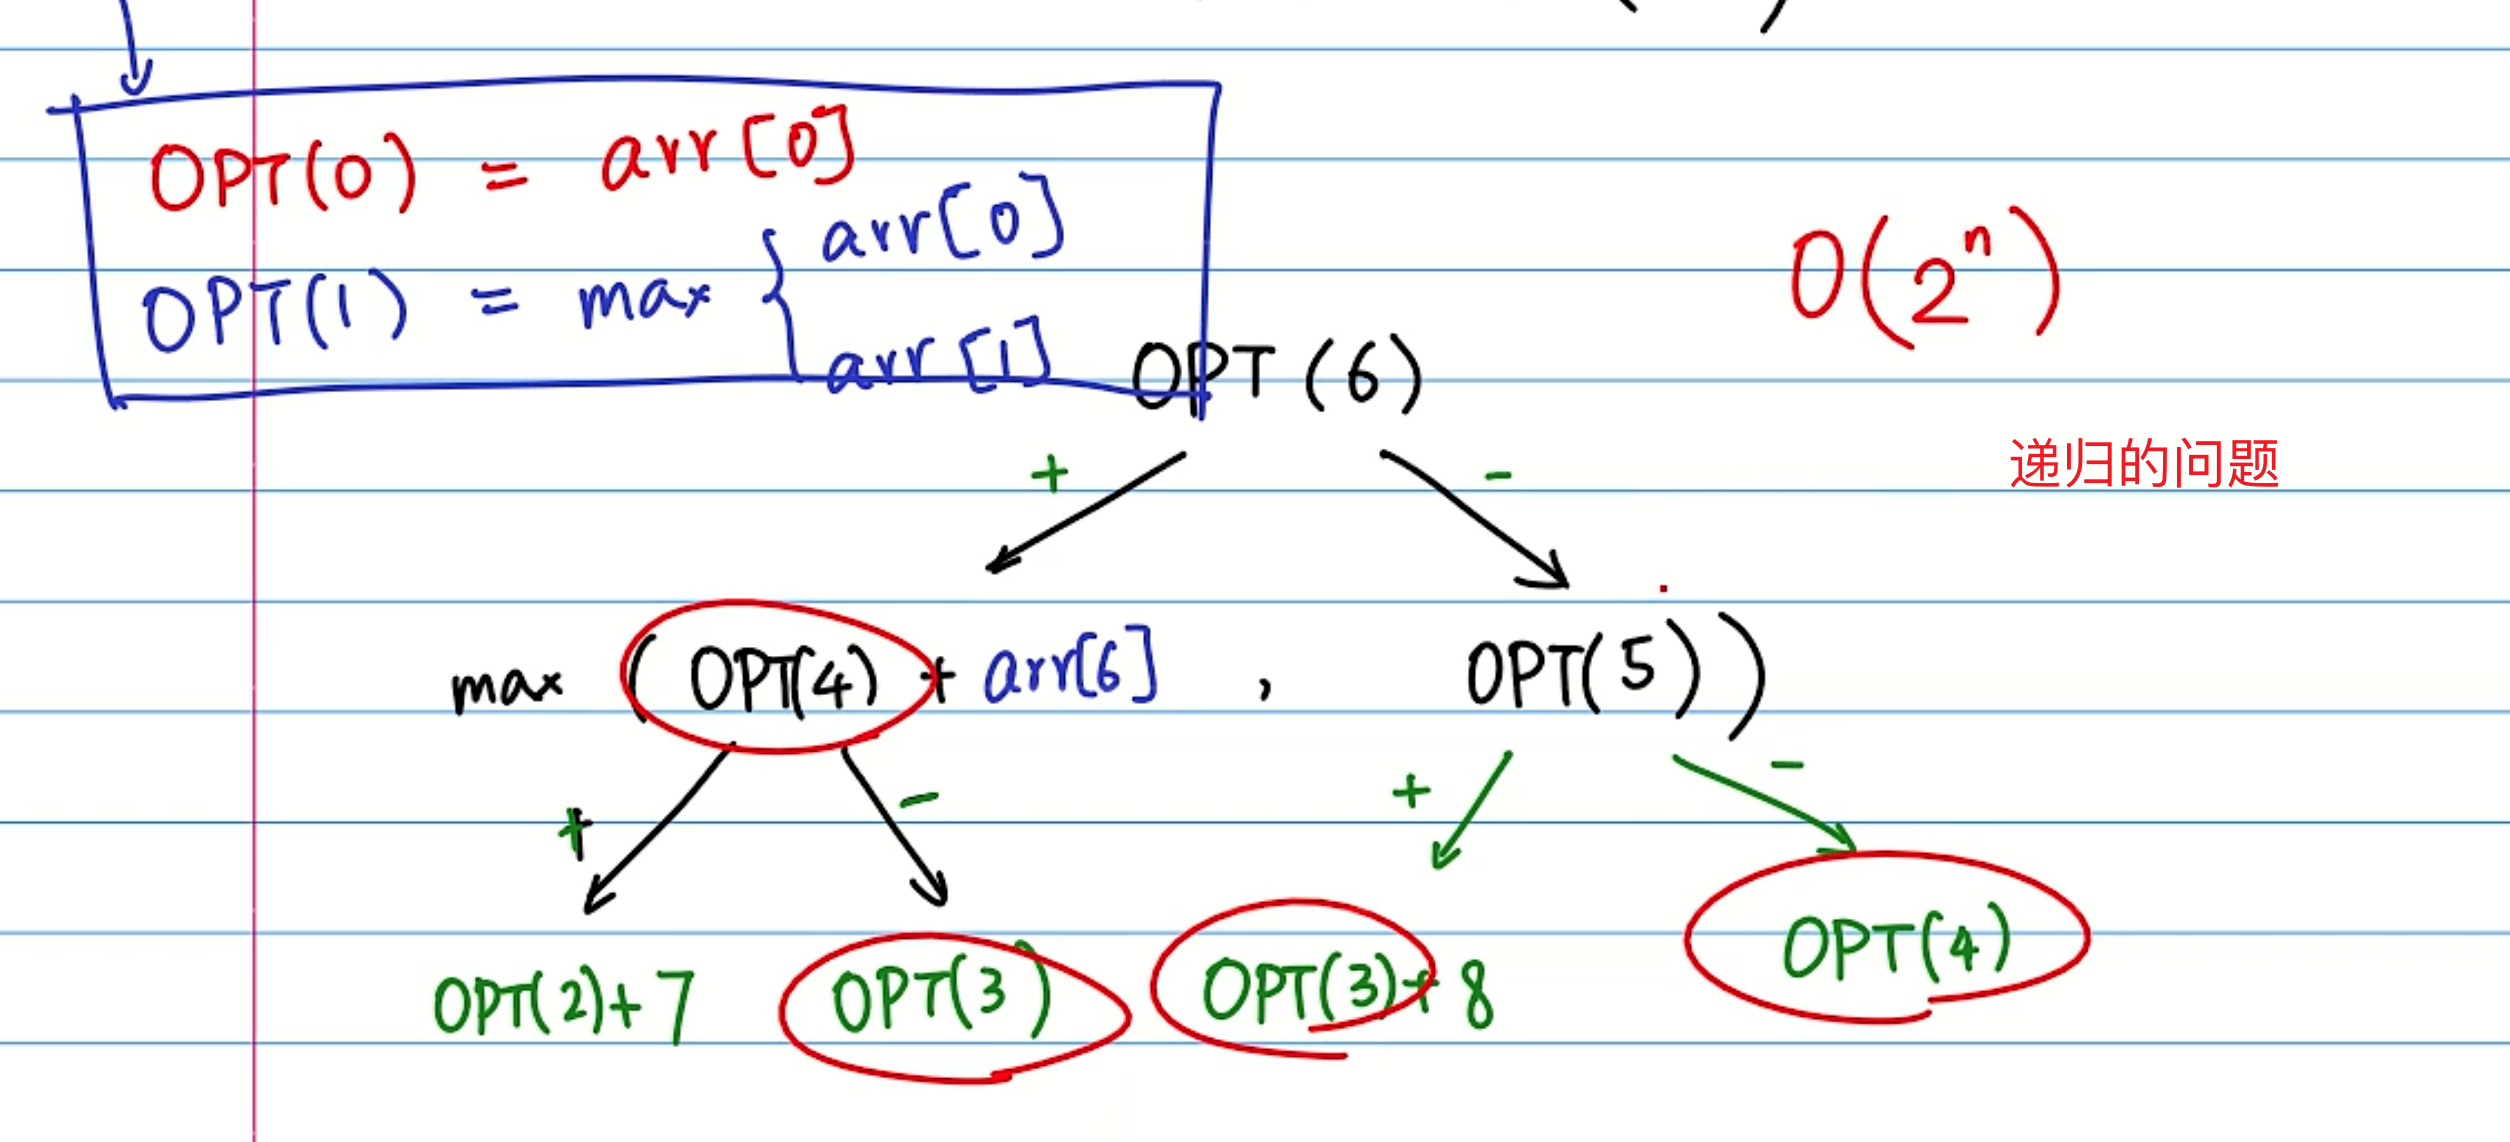 OPT(0) = arr[0]
OPT(1) = max { arr[0]
arr[1]
O(2ⁿ)
OPT(6)
+ -
递归的问题
max ( OPT(4) + arr[6] , OPT(5))
+ - + -
OPT(2)+7 OPT(3) OPT(3)+8 OPT(4)